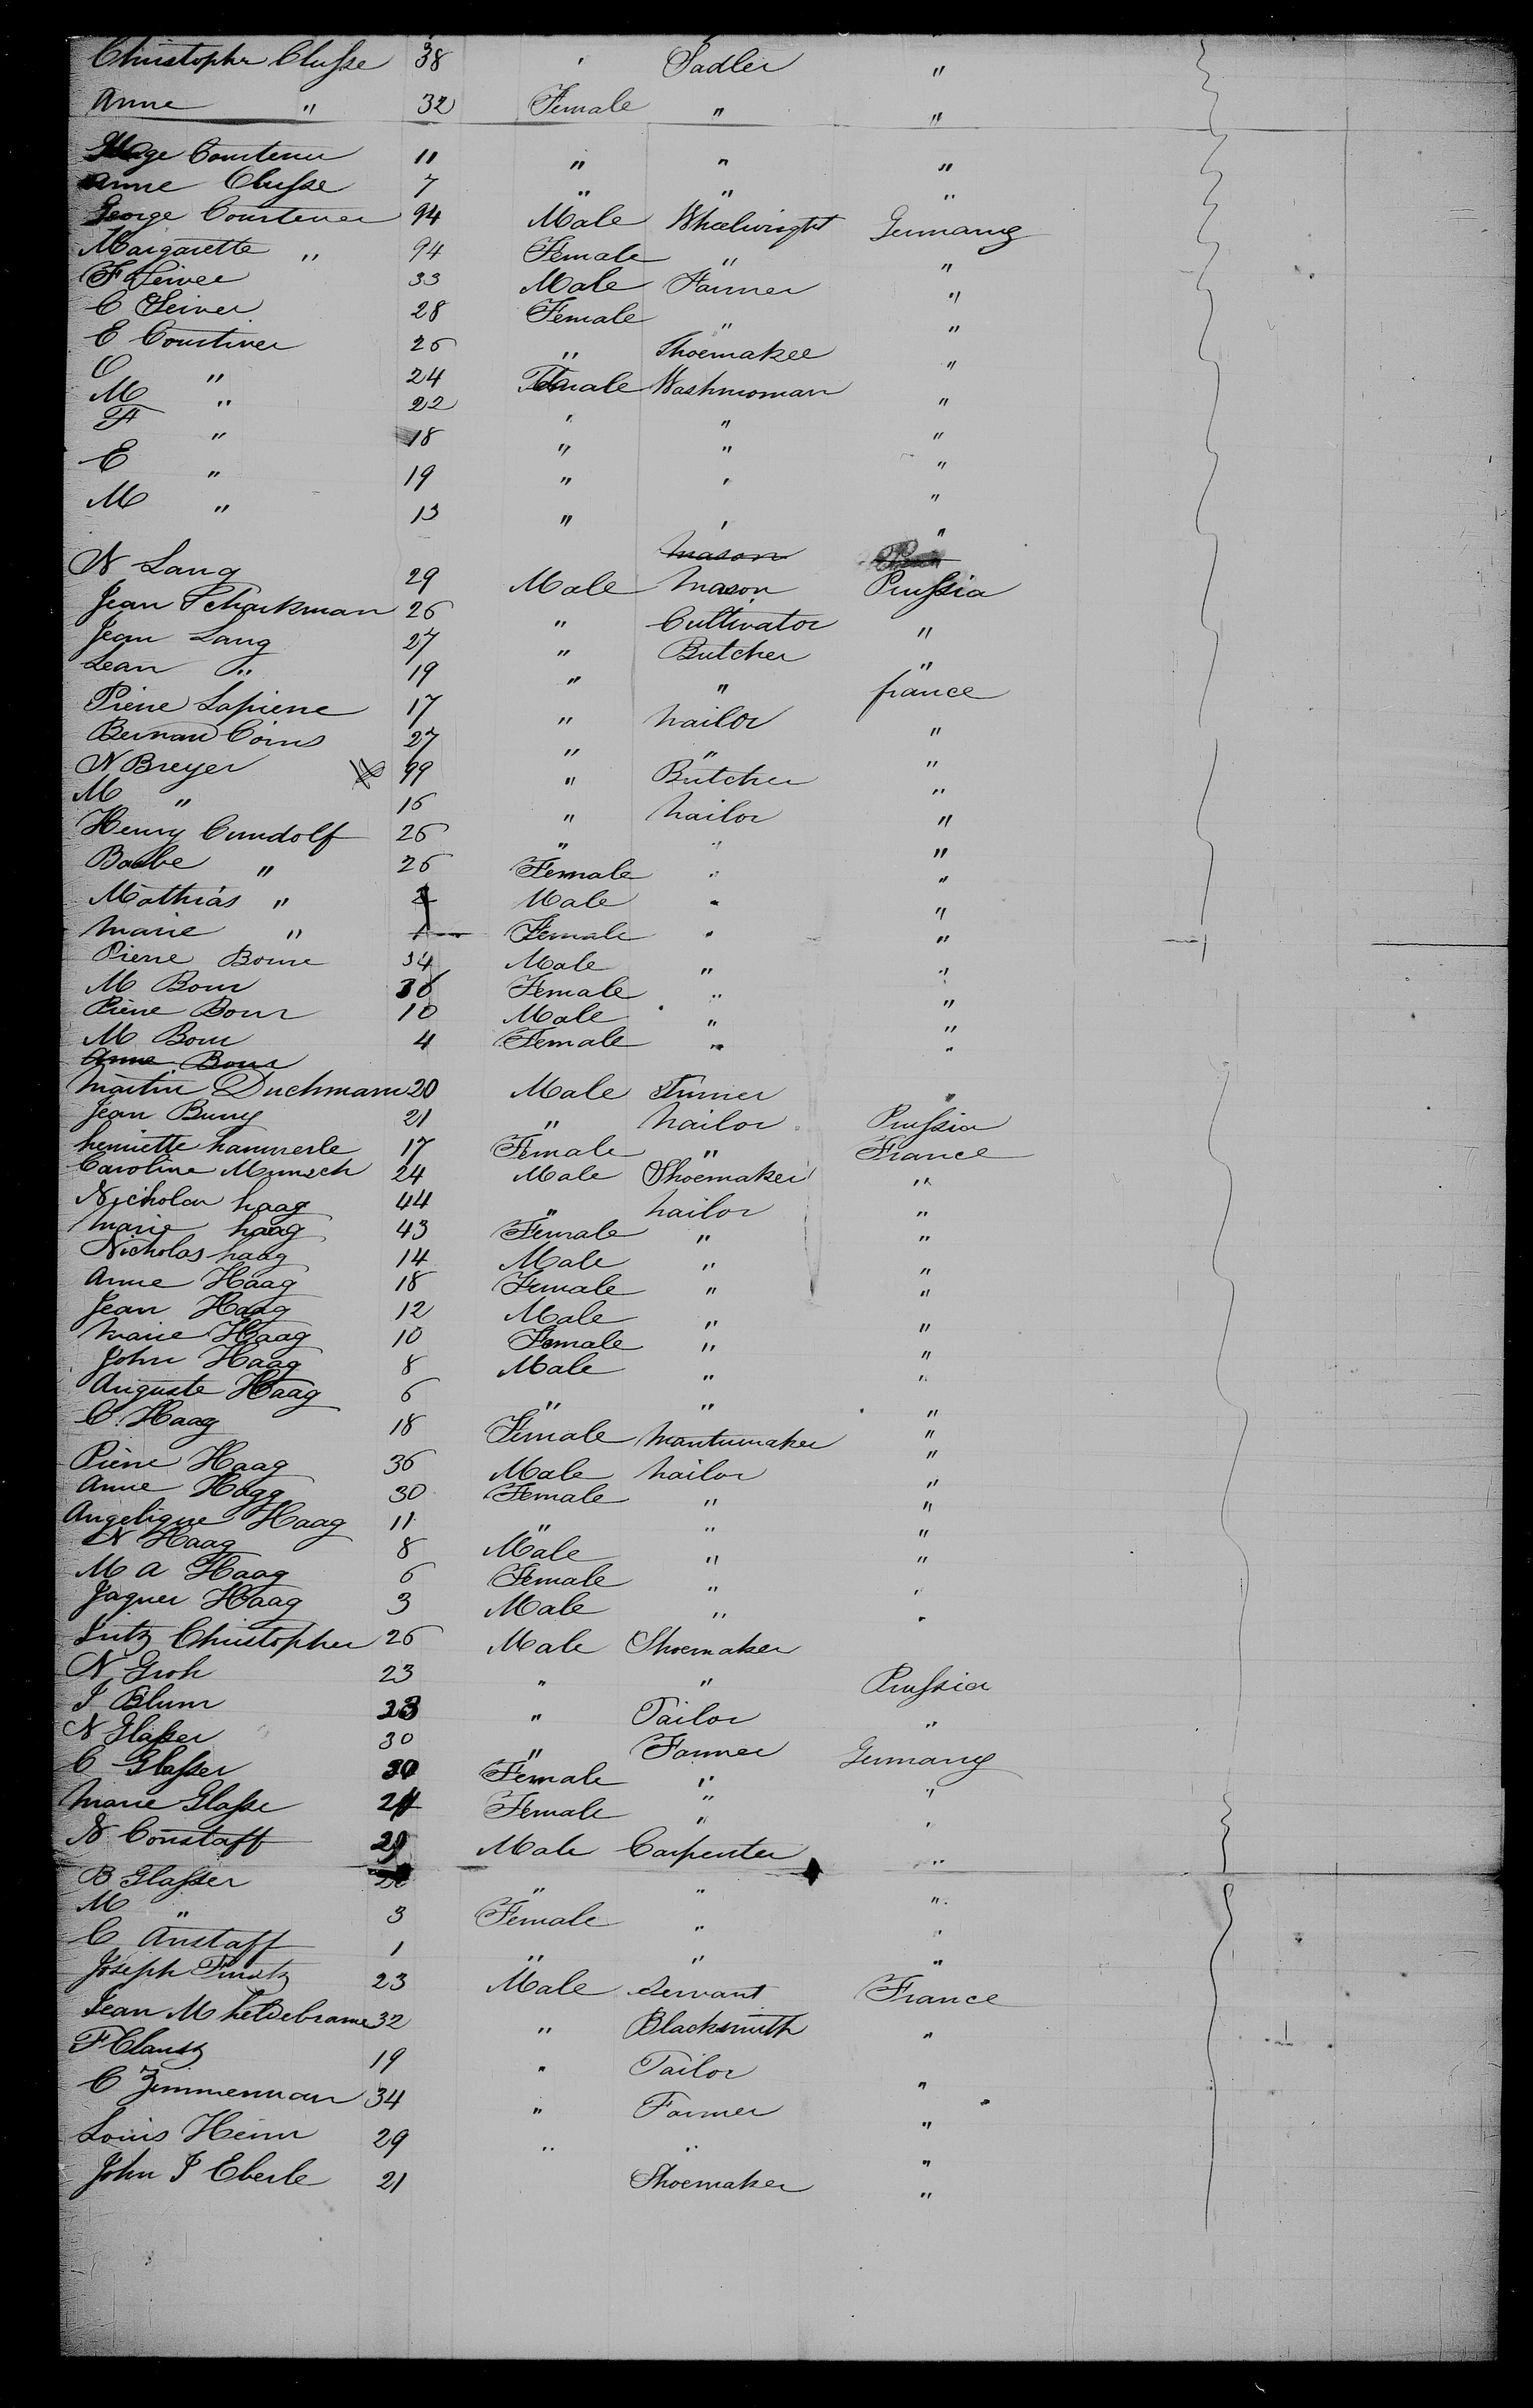 Christopher Clusse 38 " Sadler "
Anne " 32 Female " "
Courtener 11 " " "
Anne Clusse 7 " " "
George Courtener 94 Male Wheelwright Germany
Margarette " 94 Female " "
F Seiver 33 Male Farmer "
C Seiver 28 Female " "
E Courtiner 26 " Shoemaker "
C " 24 Female Washwoman "
M " 22 " " "
F " 18 " " "
E " 19 " " "
M " 13 " " "
Mason
N Lang 29 Male Mason Prussia
Jean Scharkman 26 " Cultivator "
Jean Lang 27 " Butcher "
Lean " 19 " " france
Pierre Lapierre 17 " tailor "
Bernard Coins 27 " " "
N Breyer 99 " Butcher "
M " 16 " tailor "
Henry Cundolf 26 " " "
Baebe " 26 Female " "
Mathias " 2 Male " "
Marie " Female " "
Pierre Bourre 34 Male " "
M Bour 36 Female " "
Pierre Bour 10 Male " "
M Bour 4 Female " "
Anne Bour
Martin Duchmann 20 Male Turner "
Jean Buny 21 " tailor Prussia
henriette hammerle 17 Female " France
Caroline Munsch 24 Male Shoemaker "
Nicholas haag 44 " tailor "
Marie haag 43 Female " "
Nicholas haag 14 Male " "
Anne Haag 18 Female " "
Jean Haag 12 Male " "
Marie Haag 10 Female " "
John Haag 8 Male " "
Auguste Haag 6 " " "
C. Haag 18 Female Mantumaker "
Pierre Haag 36 Male tailor "
Anne Hagg 30 Female " "
Angelique Haag 11 " " "
N Haag 8 Male " "
M A Haag 6 Female " "
Jaques Haag 3 Male " "
Lutz Christopher 26 Male Shoemaker
N Groh 23 " " Prussia
J Blum 23 " Tailor "
N Glasser 30 " Farmer Germany
C Glasser 30 Female " "
Marie Glasse 24 Female " "
N Constaff 29 Male Carpenter "
B Glasser " " "
M " 3 Female " "
C Anstaff 1 " " "
Joseph 23 Male Servant France
Jean M heldebrame 32 " Blacksmith "
F Clausz 19 " Tailor "
C Zimmerman 34 " Farmer "
Louis Heim 29 " " "
John J Eberle 21 Shoemaker "